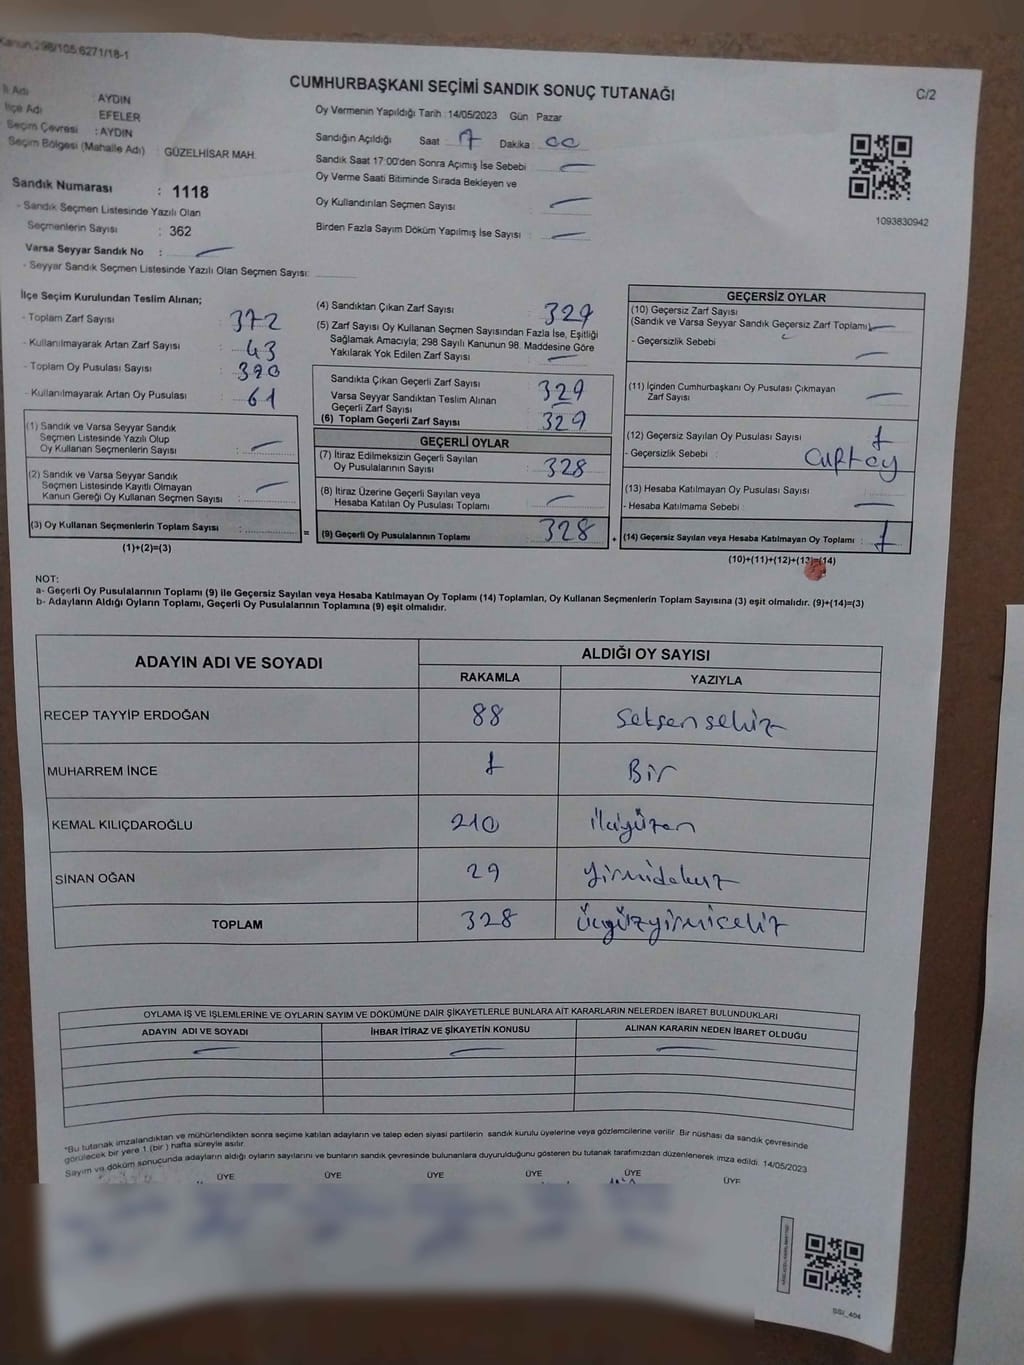 Kanun:298/105;6271/18-1
CUMHURBAŞKANI SEÇİMİ SANDIK SONUÇ TUTANAĞI
C/2
İl Adı : AYDIN
İlçe Adı : EFELER
Seçim Çevresi : AYDIN
Seçim Bölgesi (Mahalle Adı) : GÜZELHİSAR MAH.
Sandık Numarası : 1118
- Sandık Seçmen Listesinde Yazılı Olan
Seçmenlerin Sayısı : 362
Varsa Seyyar Sandık No : —
- Seyyar Sandık Seçmen Listesinde Yazılı Olan Seçmen Sayısı:
Oy Vermenin Yapıldığı Tarih : 14/05/2023 Gün Pazar
Sandığın Açıldığı Saat 17 Dakika : 00
Sandık Saat 17:00'den Sonra Açımış İse Sebebi —
Oy Verme Saati Bitiminde Sırada Bekleyen ve
Oy Kullandırılan Seçmen Sayısı : —
Birden Fazla Sayım Döküm Yapılmış İse Sayısı : —
1093830942
İlçe Seçim Kurulundan Teslim Alınan;
- Toplam Zarf Sayısı : 372
- Kullanılmayarak Artan Zarf Sayısı : 43
- Toplam Oy Pusulası Sayısı : 390
- Kullanılmayarak Artan Oy Pusulası : 61
(1) Sandık ve Varsa Seyyar Sandık
Seçmen Listesinde Yazılı Olup
Oy Kullanan Seçmenlerin Sayısı : —
(2) Sandık ve Varsa Seyyar Sandık
Seçmen Listesinde Kayıtlı Olmayan
Kanun Gereği Oy Kullanan Seçmen Sayısı : —
(3) Oy Kullanan Seçmenlerin Toplam Sayısı :
(1)+(2)=(3)
=
(4) Sandıktan Çıkan Zarf Sayısı : 329
(5) Zarf Sayısı Oy Kullanan Seçmen Sayısından Fazla İse, Eşitliği
Sağlamak Amacıyla; 298 Sayılı Kanunun 98. Maddesine Göre
Yakılarak Yok Edilen Zarf Sayısı : —
Sandıkta Çıkan Geçerli Zarf Sayısı : 329
Varsa Seyyar Sandıktan Teslim Alınan
Geçerli Zarf Sayısı : —
(6) Toplam Geçerli Zarf Sayısı : 329
GEÇERLİ OYLAR
(7) İtiraz Edilmeksizin Geçerli Sayılan
Oy Pusulalarının Sayısı : 328
(8) İtiraz Üzerine Geçerli Sayılan veya
Hesaba Katılan Oy Pusulaları Toplamı : —
(9) Geçerli Oy Pusulalarının Toplamı : 328
+
GEÇERSİZ OYLAR
(10) Geçersiz Zarf Sayısı
(Sandık ve Varsa Seyyar Sandık Geçersiz Zarf Toplamı) —
- Geçersizlik Sebebi : —
(11) İçinden Cumhurbaşkanı Oy Pusulası Çıkmayan
Zarf Sayısı : —
(12) Geçersiz Sayılan Oy Pusulası Sayısı : 1
- Geçersizlik Sebebi :
(13) Hesaba Katılmayan Oy Pusulası Sayısı :
- Hesaba Katılmama Sebebi : —
(14) Geçersiz Sayılan veya Hesaba Katılmayan Oy Toplamı : 1
(10)+(11)+(12)+(13)=(14)
NOT:
a- Geçerli Oy Pusulalarının Toplamı (9) ile Geçersiz Sayılan veya Hesaba Katılmayan Oy Toplamı (14) Toplamları, Oy Kullanan Seçmenlerin Toplam Sayısına (3) eşit olmalıdır. (9)+(14)=(3)
b- Adayların Aldığı Oyların Toplamı, Geçerli Oy Pusulalarının Toplamına (9) eşit olmalıdır.
ADAYIN ADI VE SOYADI
ALDIĞI OY SAYISI
RAKAMLA YAZIYLA
RECEP TAYYİP ERDOĞAN 88 Seksensekiz
MUHARREM İNCE 1 Bir
KEMAL KILIÇDAROĞLU 210 ikiyüzon
SİNAN OĞAN 29 yirmidokuz
TOPLAM 328 üçyüzyirmisekiz
OYLAMA İŞ VE İŞLEMLERİNE VE OYLARIN SAYIM VE DÖKÜMÜNE DAİR ŞİKAYETLERLE BUNLARA AİT KARARLARIN NELERDEN İBARET BULUNDUKLARI
ADAYIN ADI VE SOYADI İHBAR İTİRAZ VE ŞİKAYETİN KONUSU ALINAN KARARIN NEDEN İBARET OLDUĞU
— — —
*Bu tutanak imzalandıktan ve mühürlendikten sonra seçime katılan adayların ve talep eden siyasi partilerin sandık kurulu üyelerine veya gözlemcilerine verilir. Bir nüshası da sandık çevresinde
görülecek bir yere 1 (bir) hafta süreyle asılır.
Sayım ve döküm sonucunda adayların aldığı oyların sayılarını ve bunların sandık çevresinde bulunanlara duyurulduğunu gösteren bu tutanak tarafımızdan düzenlenerek imza edildi. 14/05/2023
ÜYE ÜYE ÜYE ÜYE ÜYE ÜYE
SSİ_404